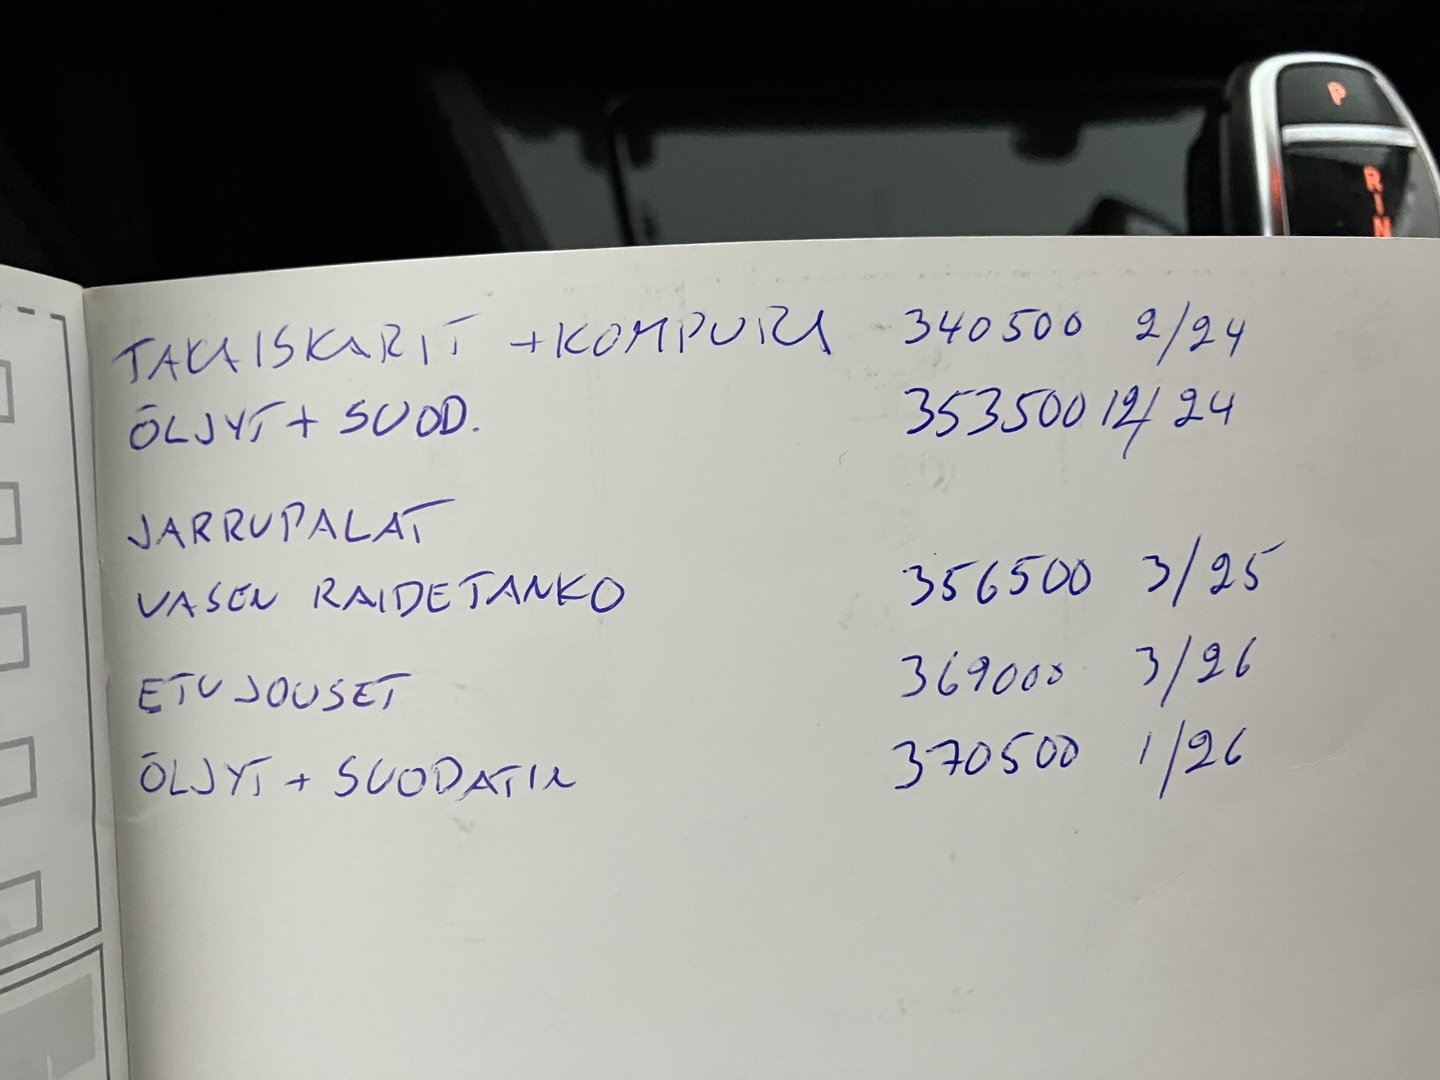 P
R
N
TAKAISKARIT + KOMPURA 340500 2/24
ÖLJYT + SUOD. 353500 12/24
JARRUPALAT
VASEN RAIDETANKO 356500 3/25
ETUJOUSET 369000 3/26
ÖLJYT + SUODATIN 370500 1/26